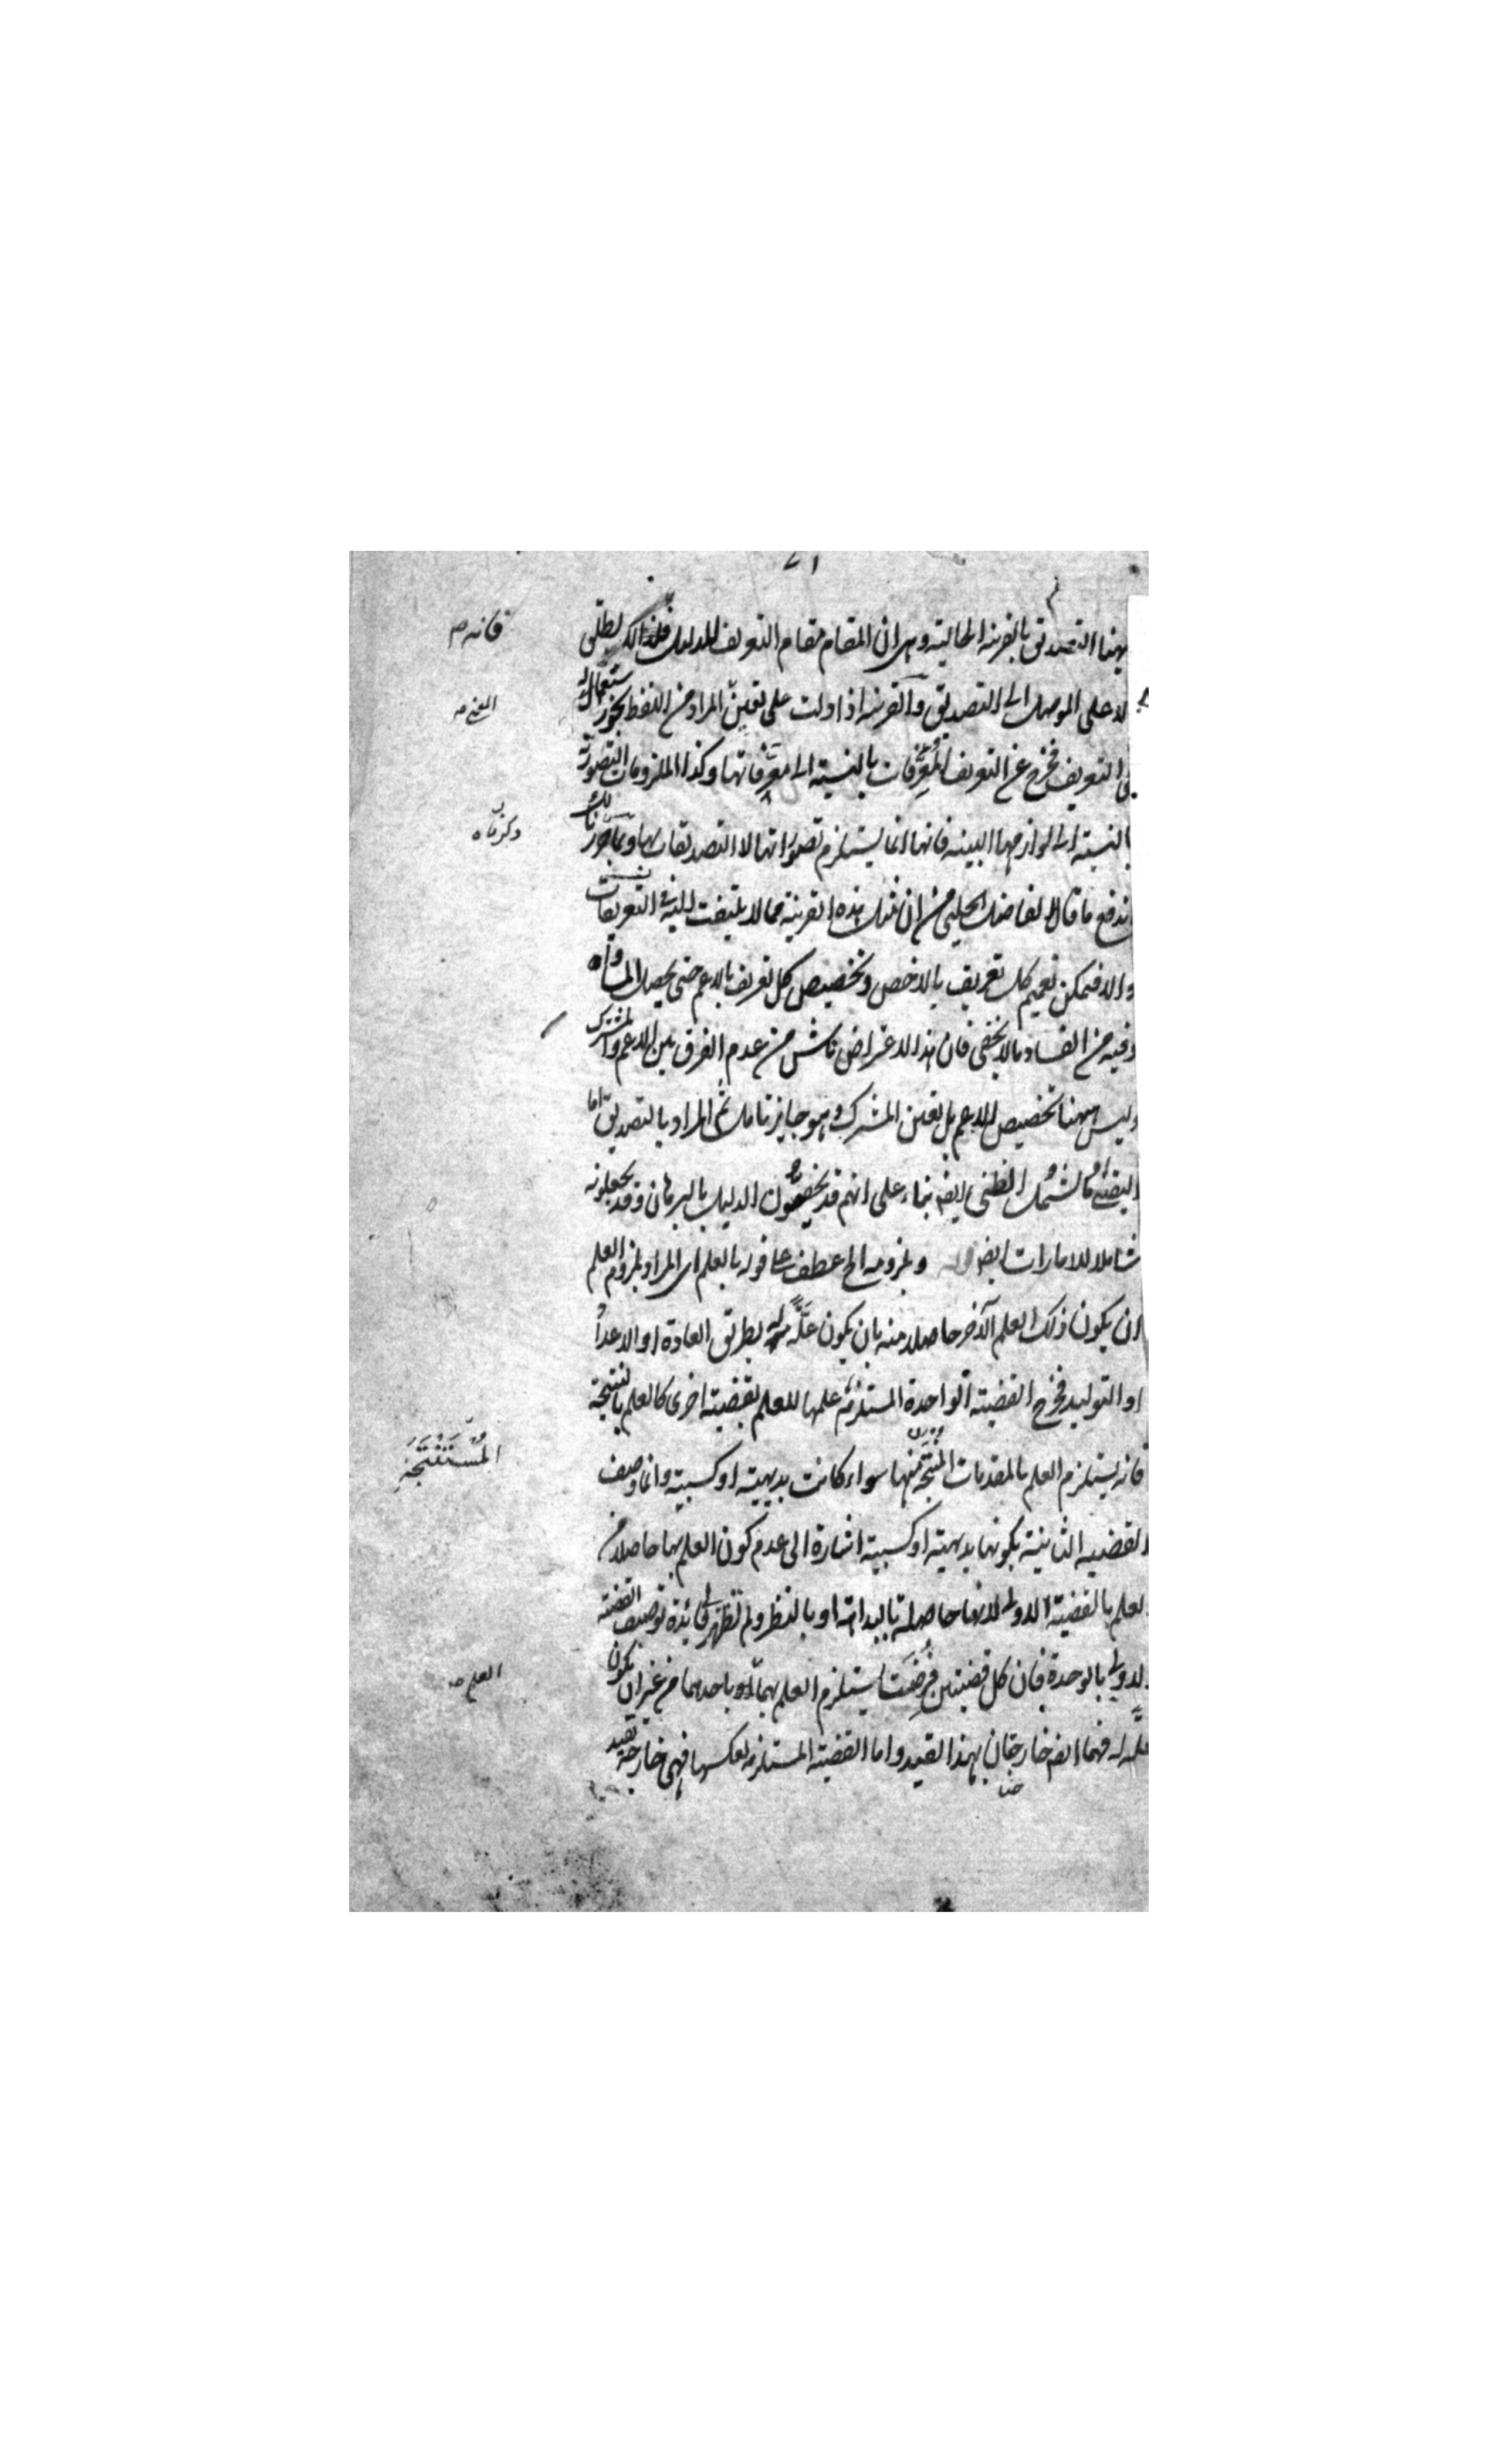 ٧١
ههنا التصديق بالقرينة الحالية وهى ان المقام مقام التعريف للدليل فلذلك يطلق
فانه م
الا على الموصل الى التصديق والقرينة اذا دلت على تعيين المراد من اللفظ يجوز استعماله
فى التعريف فخرج عن التعريف المعرفات بالنسبة الى معرفاتها وكذا الملزومات التصورية
بالنسبة الى لوازمها البينة فانها انما يستلزم تصوراتها لا التصديقات بها وبما حررنا لك
وذكرناه
اندفع ما قال الفاضل الجلبى من ان مثل هذه القرينة مما لا يلتفت اليه فى التعريفات
والا فيمكن تعميم كل تعريف بالاخص وتخصيص كل تعريف بالاعم حتى يحصل المساواة
وفيه من الفساد ما لا يخفى فان هذا الاعتراض ناش من عدم الفرق بين الاعم والمشترك
وليس ههنا تخصيص للاعم بل تعيين المشترك وهو جايز تامل ثم المراد بالتصديق اما
اليقينى او ما يشمل الظنى ايضا بناء على انهم قد يخصون الدليل بالبرهان وقد يجعلونه
شاملا للامارات ايضا قوله وبلزومه الخ عطف على قوله بالعلم اى المراد بلزوم العلم
ان يكون ذلك العلم الآخر حاصلا منه بان يكون علة له بطريق العادة او الاعداد
او التوليد فخرج القضية الواحدة المستلزم علمها للعلم بقضية اخرى كالعلم بالنتيجة
فانه يستلزم العلم بالمقدمات المنتجة منها سواء كانت بديهية او كسبية وانما وصف
المستنتجة
القضية الثانية بكونها بديهية او كسبية اشارة الى عدم كون العلم بها حاصلا من
العلم بالقضية الاولى لانها حاصلة بالبداهة او بالنظر ولم تظهر لى فائدة توصيف القضية
الاولى بالوحدة فان كل قضيتين فرضت يستلزم العلم بهما او باحدهما من غير ان يكون
العلم صح
علة له فهما ايضا خارجتان بهذا القيد واما القضية المستلزمة لعكسها فهى خارجة بقيد